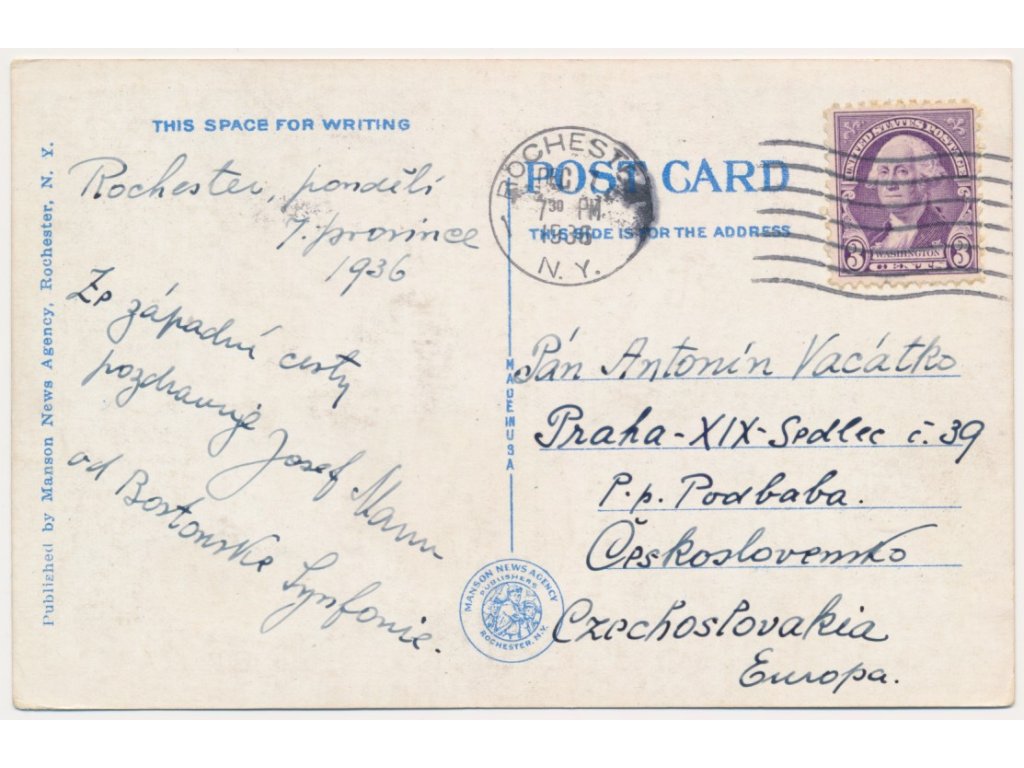 THIS SPACE FOR WRITING
Rochester, pondělí
7. prosince
1936
Ze západní cesty
pozdravuje Josef Mann
od Bostonské Synfonie.
Published by Manson News Agency, Rochester, N. Y.
POST CARD
THIS SIDE IS FOR THE ADDRESS
ROCHESTER
7 30 PM
1936
N. Y.
UNITED STATES POSTAGE
3 WASHINGTON 3
CENTS
MADE IN USA
Pán Antonín Vacátko
Praha-XIX-Sedlec č. 39
P.p. Podbaba.
Československo
Czechoslovakia
Europa.
MANSON NEWS AGENCY
PUBLISHERS
ROCHESTER, N.Y.